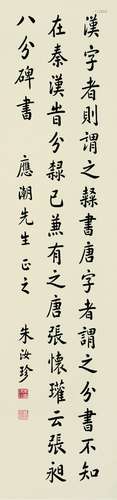 漢字者則謂之隸書唐字者謂之分書不知
在秦漢昔分隸已蒹有之唐張懷瓘云張昶
八分碑書
應潮先生正之
朱汝珍